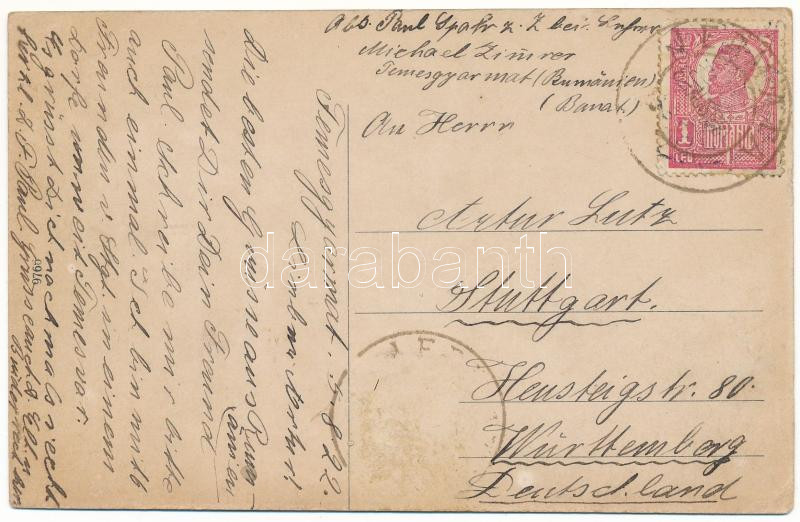 Abs. Paul Spahr z. Z. bei Lehrer
Michael Zimmer
Temesgyarmat (Rumänien)
(Banat.)
An Herrn
Artur Lutz
Stuttgart.
Heusteigstr. 80.
Württemberg
Deutschland
1
LEU
Temesgyarmat. 5.8.22.
Lieber Artur!
Die besten Grüsse aus Rumänien
sendet Dir Dein Freund
Paul. Schreibe mir bitte
auch einmal. Ich bin mit
Freunden v. Stgt. in einem
Dorfe unweit Temesvar.
Es grüsst Dich nochmals recht
herzl. D. F. Paul
0976
darabanth